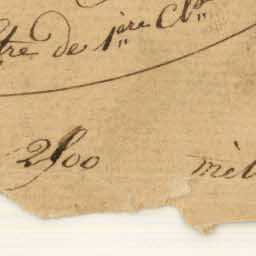 tre de 1ère Cl
2500 mèt